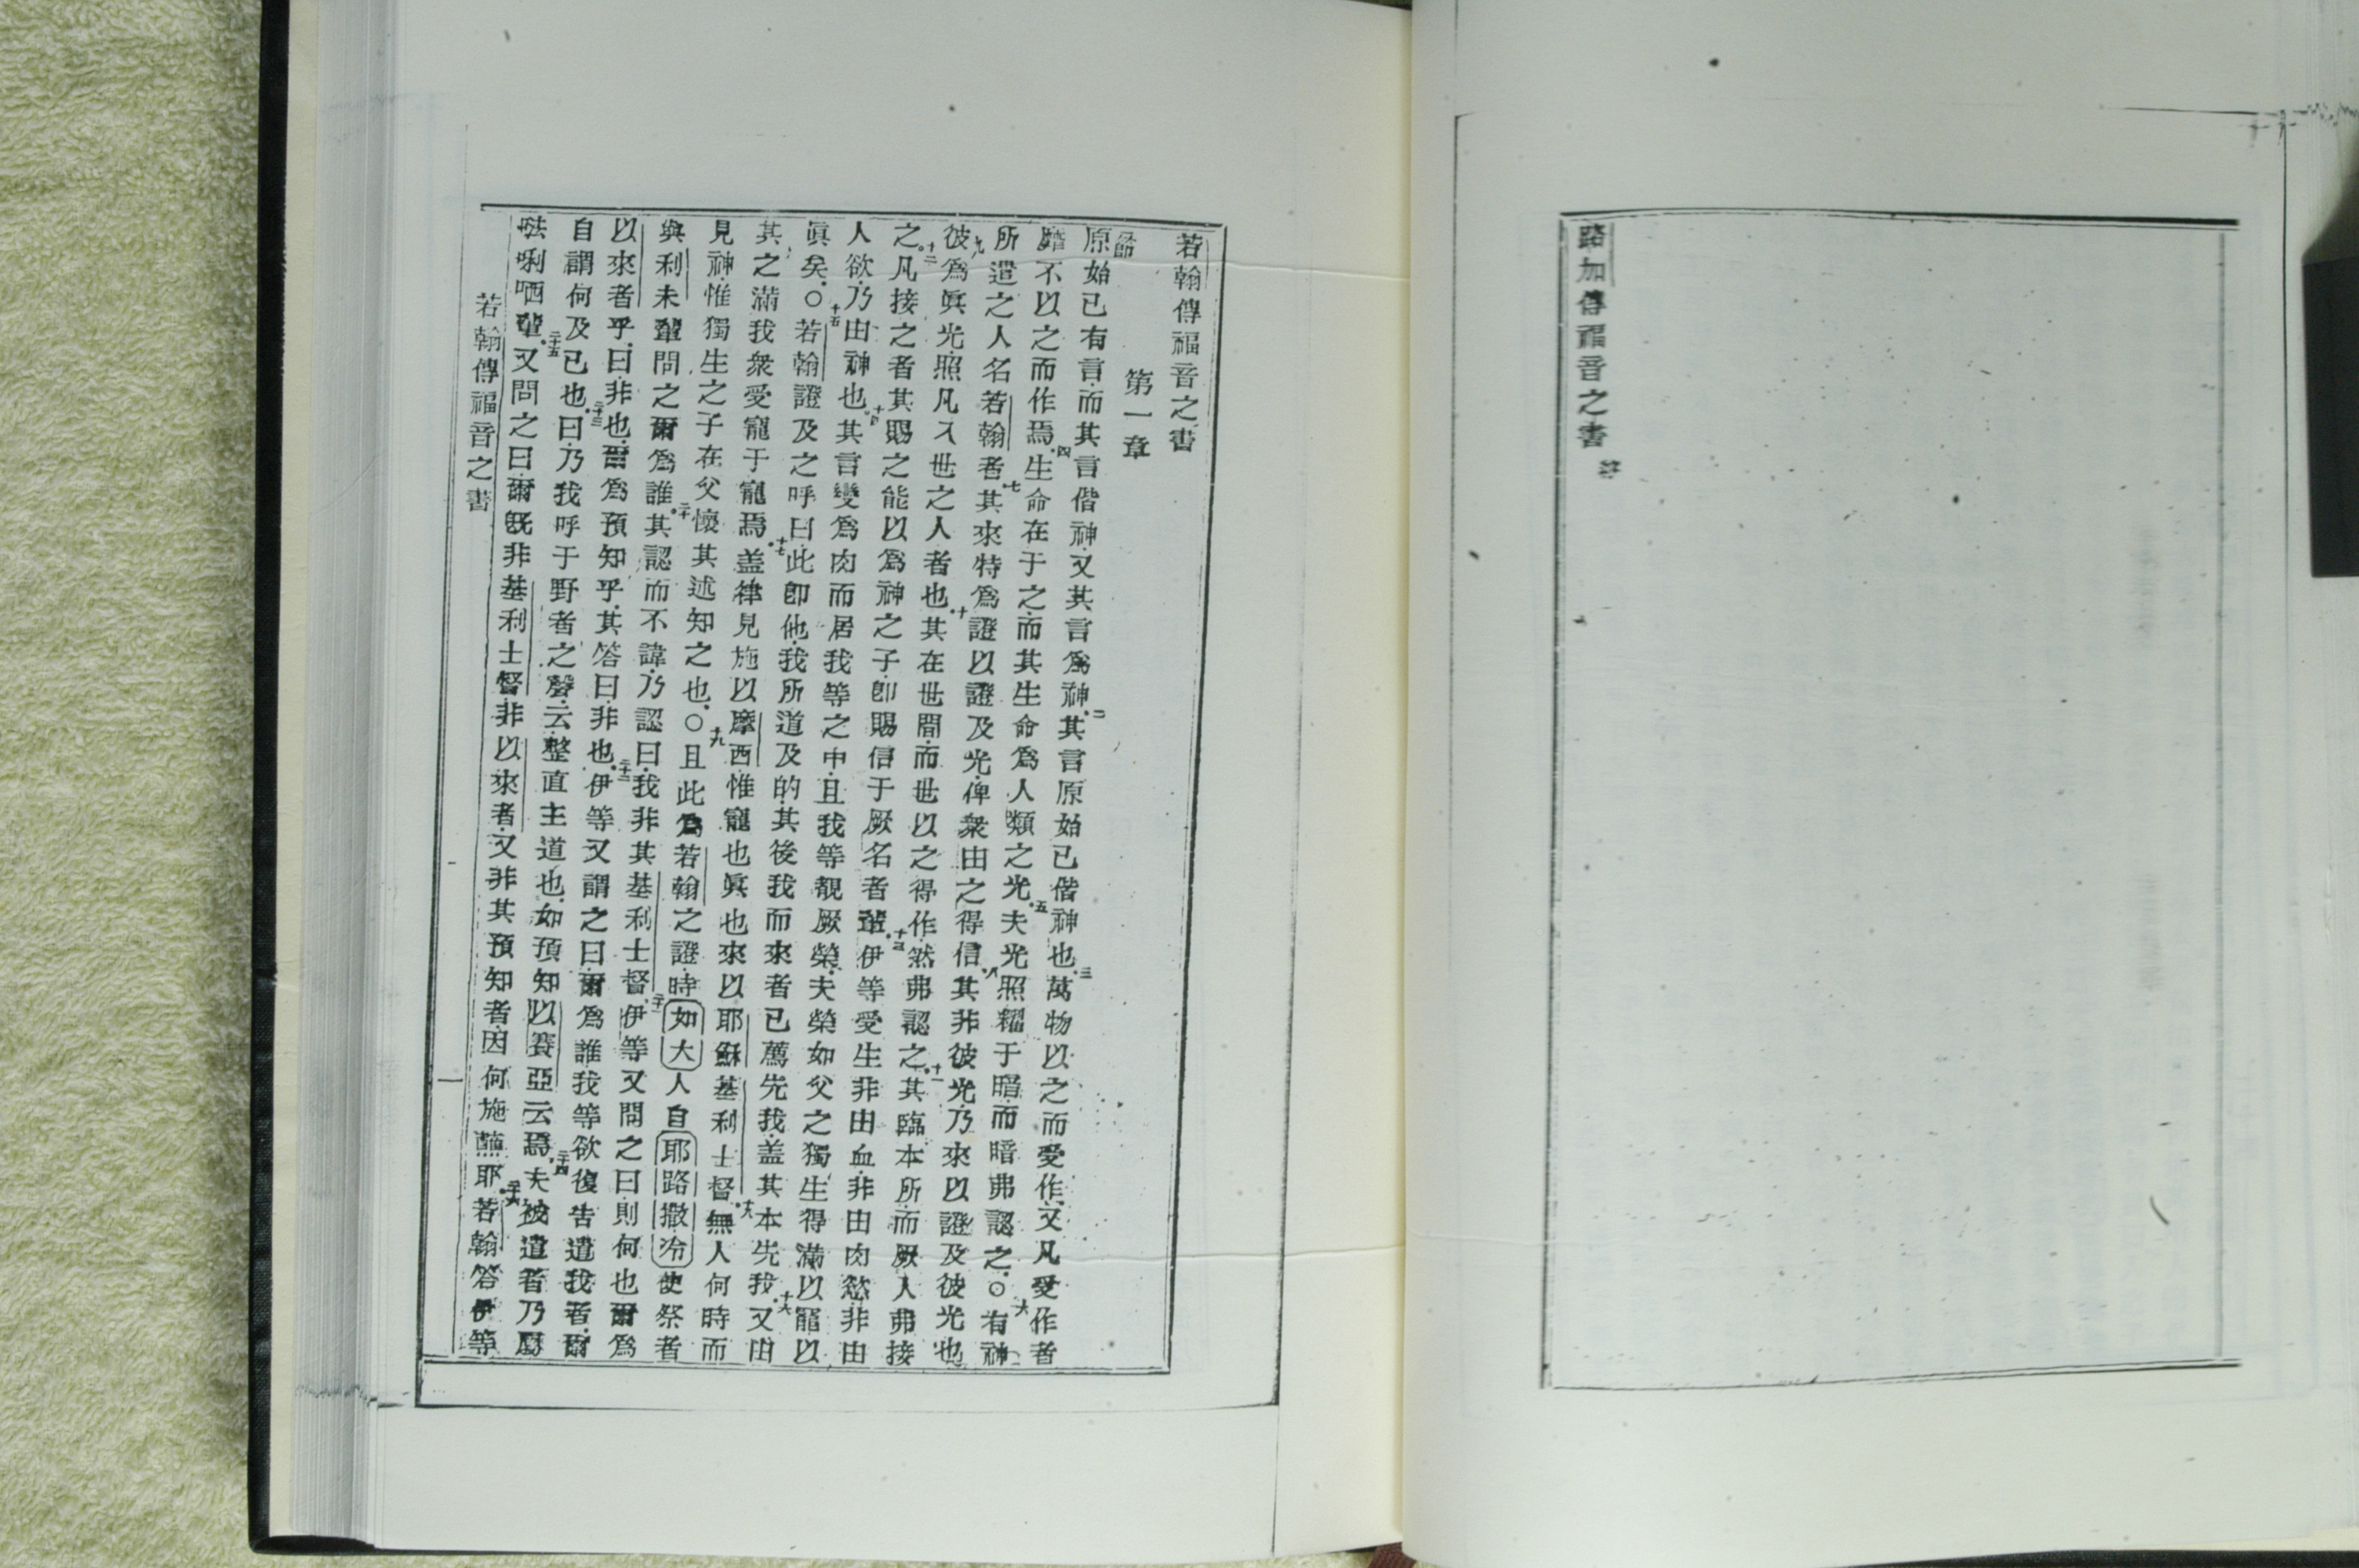 路加傳福音之書 終
若翰傳福音之書
第一章
節
原始已有言而其言偕神又其言爲神二其言原始已偕神也三萬物以之而受作又凡受作者
靡不以之而作焉四生命在于之而其生命爲人類之光五夫光照耀于暗而暗弗認之○六有神
所遣之人名若翰者七其來特爲證以證及光俾衆由之得信八其非彼光乃來以證及彼光也
九彼爲眞光照凡入世之人者也十其在世間而世以之得作然弗認之十一其臨本所而厥人弗接
之十二凡接之者其賜之能以爲神之子卽賜信于厥名者輩十三伊等受生非由血非由肉慾非由
人欲乃由神也十四其言變爲肉而居我等之中且我等覩厥榮夫榮如父之獨生得滿以寵以
眞矣○十五若翰證及之呼曰此卽他我所道及的其後我而來者已薦先我蓋其本先我十六又由
其之滿我衆受寵于寵焉十七蓋律見施以摩西惟寵也眞也來以耶穌基利士督十八無人何時而
見神惟獨生之子在父懷其述知之也○十九且此爲若翰之證時如大人自耶路撒冷使祭者
與利未輩問之爾爲誰二十其認而不諱乃認曰我非其基利士督二十一伊等又問之曰則何也爾爲
以來者乎曰非也爾爲預知乎其答曰非也二十二伊等又謂之曰爾爲誰我等欲復告遣我者爾
自謂何及已也二十三曰乃我呼于野者之聲云整直主道也如預知以賽亞云焉二十四夫被遣者乃屬
𠵽唎哂輩二十五又問之曰爾既非基利士督非以來者又非其預知者因何施蘸耶二十六若翰答伊等
若翰傳福音之書
一